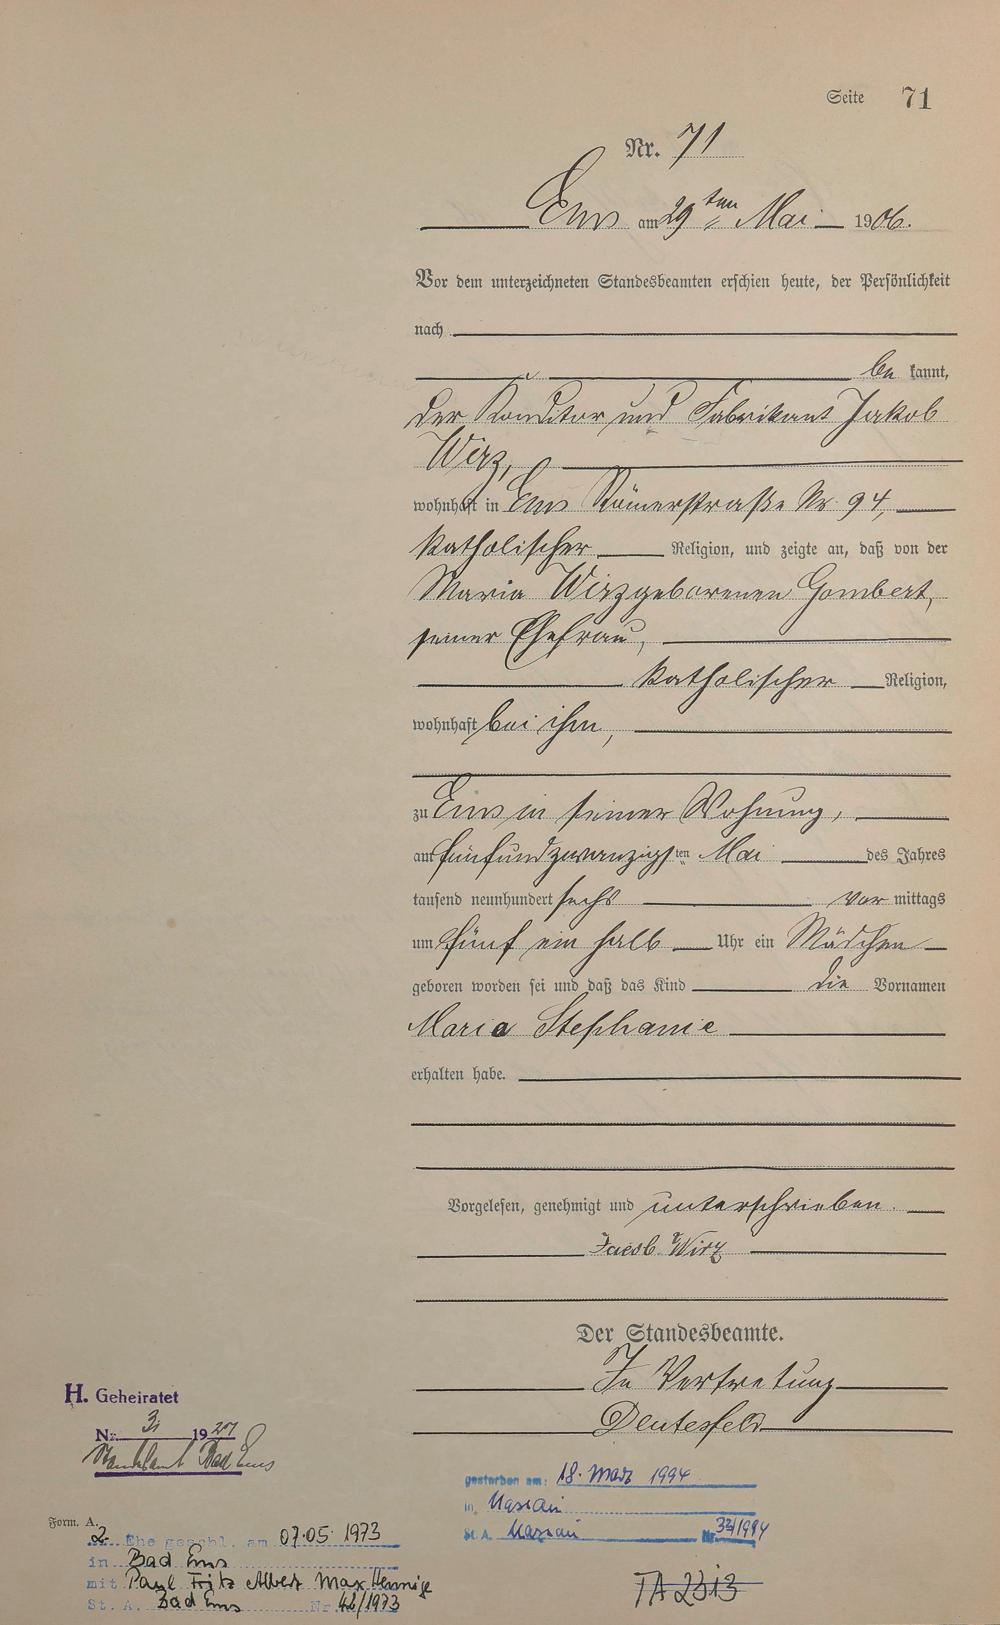 Seite 71
Nr. 71
Ems am 29ten Mai 1906.
Vor dem unterzeichneten Standesbeamten erschien heute, der Persönlichkeit
nach
be kannt,
der Konditor und Fabrikant Jakob
Wirz,
wohnhaft in Ems Römerstraße Nr. 94,
katholischer Religion, und zeigte an, daß von der
Maria Wirz geborenen Gombert,
seiner Ehefrau,
katholischer Religion,
wohnhaft bei ihm,
zu Ems in seiner Wohnung,
am fünfundzwanzigsten Mai des Jahres
tausend neunhundert sechs vor mittags
um fünf ein halb Uhr ein Mädchen
geboren worden sei und daß das Kind die Vornamen
Maria Stephanie
erhalten habe.
Vorgelesen, genehmigt und unterschrieben.
Jacob Wirz
Der Standesbeamte.
In Vertretung
H. Geheiratet
Nr. 19
Standesamt Bad Ems
gestorben am: 18. März 1994
in Nassau
St. A. Nassau Nr. 33/1994
Form. A.
2. Ehe geschl. am 07.05.1973
in Bad Ems
mit Paul Fritz Albert Max Hennige
St. A. Bad Ems Nr. 46/1973
TA 2313